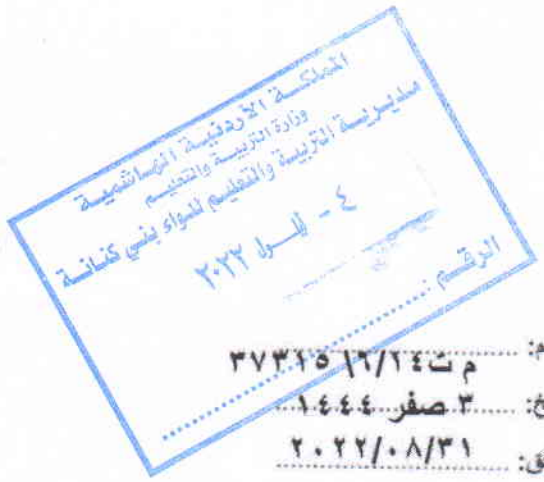 المملكة الأردنية الهاشمية
وزارة التربية والتعليم
مديرية التربية والتعليم للواء بني كنانة
٤ - أيلول ٢٠٢٢
الرقم :
م ت/١٤/٦/ ٣٧٣١٥
٣ صفر ١٤٤٤
٢٠٢٢/٠٨/٣١